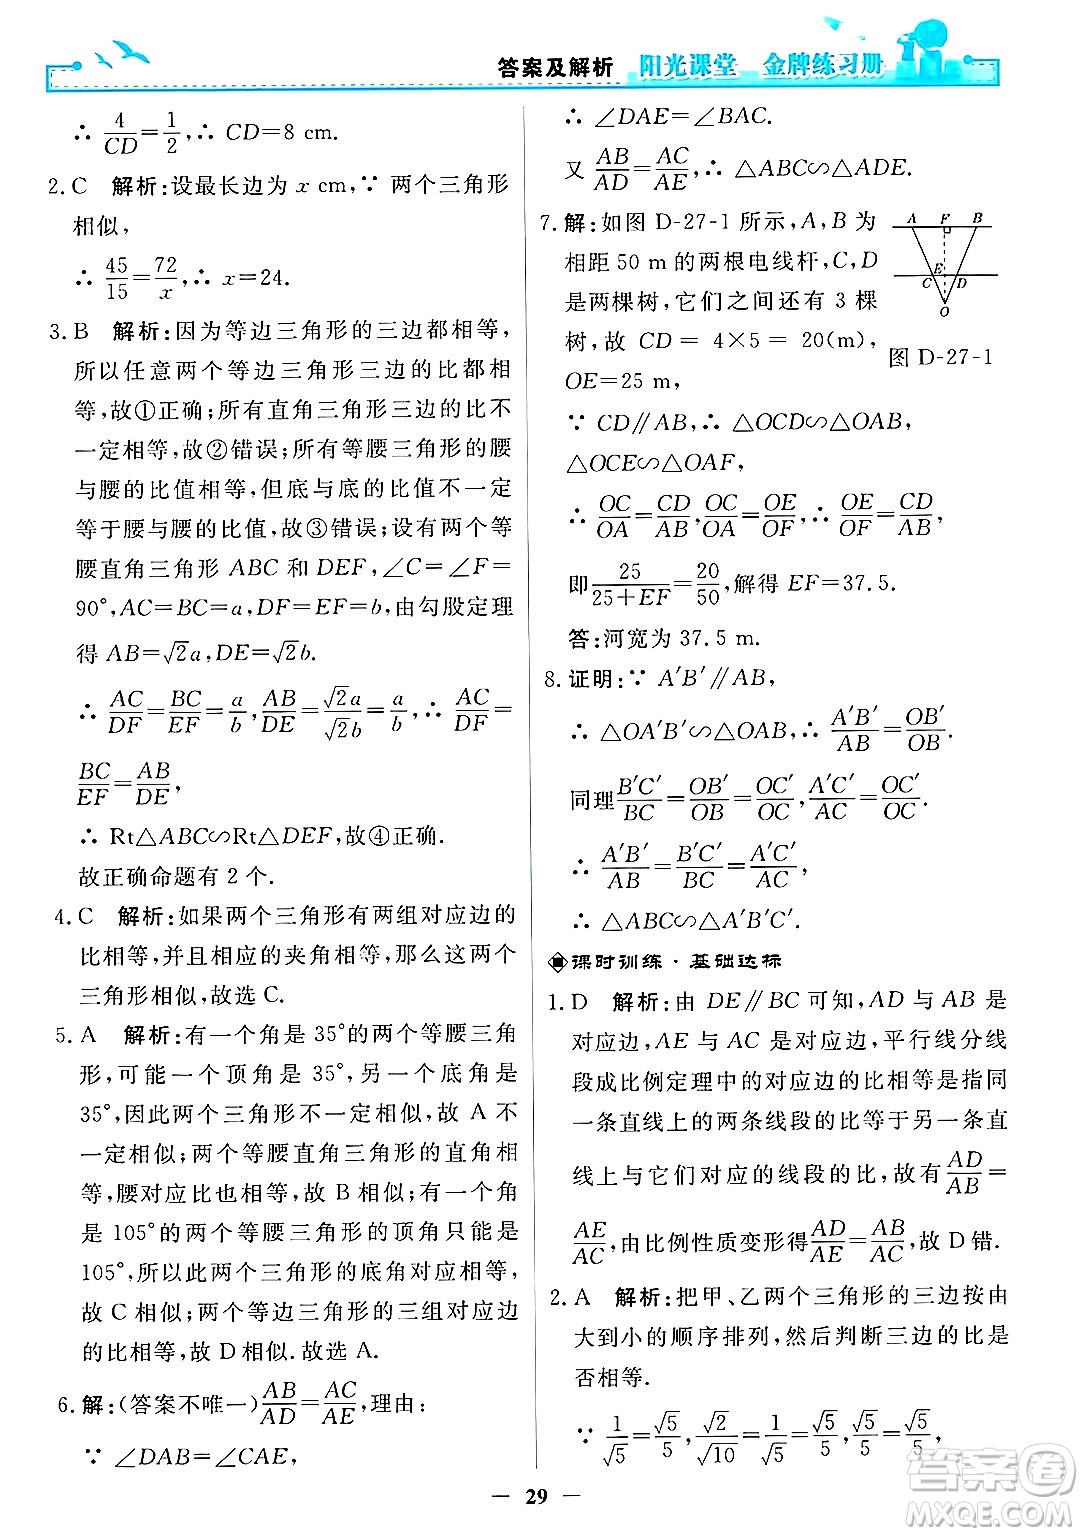 答案及解析 阳光课堂 金牌练习册
∴ 4/CD=1/2,∴ CD=8 cm.
2.C 解析:设最长边为 x cm,∵ 两个三角形
相似,
∴ 45/15=72/x,∴ x=24.
3.B 解析:因为等边三角形的三边都相等,
所以任意两个等边三角形三边的比都相
等,故①正确;所有直角三角形三边的比不
一定相等,故②错误;所有等腰三角形的腰
与腰的比值相等,但底与底的比值不一定
等于腰与腰的比值,故③错误;设有两个等
腰直角三角形 ABC 和 DEF,∠C=∠F=
90°,AC=BC=a,DF=EF=b,由勾股定理
得 AB=√2a,DE=√2b.
∴ AC/DF=BC/EF=a/b,AB/DE=√2a/√2b=a/b,∴ AC/DF=
BC/EF=AB/DE,
∴ Rt△ABC∽Rt△DEF,故④正确.
故正确命题有 2 个.
4.C 解析:如果两个三角形有两组对应边的
比相等,并且相等的夹角相等,那么这两个
三角形相似,故选 C.
5.A 解析:有一个角是 35°的两个等腰三角
形,可能一个顶角是 35°,另一个底角是
35°,因此两个三角形不一定相似,故 A 不
一定相似;两个等腰直角三角形的直角相
等,腰对应比也相等,故 B 相似;有一个角
是 105°的两个等腰三角形的顶角只能是
105°,所以此两个三角形的底角相等,
故 C 相似;两个等边三角形的三组对应边
的比相等,故 D 相似.故选 A.
6.解:(答案不唯一)AB/AD=AC/AE,理由:
∵ ∠DAB=∠CAE,
∴ ∠DAE=∠BAC.
又 AB/AD=AC/AE,∴ △ABC∽△ADE.
7.解:如图 D-27-1 所示,A,B 为
相距 50 m 的两根电线杆,C,D
是两棵树,它们之间还有 3 棵
树,故 CD = 4×5 = 20(m),
OE=25 m,
A F B
C E D
O
图 D-27-1
∵ CD∥AB,∴ △OCD∽△OAB,
△OCE∽△OAF,
∴ OC/OA=CD/AB,OC/OA=OE/OF,∴ OE/OF=CD/AB,
即25/(25+EF)=20/50,解得 EF=37.5.
答:河宽为 37.5 m.
8.证明:∵ A′B′∥AB,
∴ △OA′B′∽△OAB,∴ A′B′/AB=OB′/OB.
同理B′C′/BC=OB′/OB=OC′/OC,A′C′/AC=OC′/OC.
∴ A′B′/AB=B′C′/BC=A′C′/AC,
∴ △ABC∽△A′B′C′.
课时训练·基础达标
1.D 解析:由 DE∥BC 可知,AD 与 AB 是
对应边,AE 与 AC 是对应边,平行线分线
段成比例定理中的对应边的比相等是指同
一条直线上的两条线段的比等于另一条直
线上与它们对应的线段的比,故有AD/AB=
AE/AC,由比例性质变形得AD/AE=AB/AC,故 D 错.
2.A 解析:把甲、乙两个三角形的三边按由
大到小的顺序排列,然后判断三边的比是
否相等.
∵ 1/√5=√5/5,√2/√10=1/√5=√5/5,√5/5=√5/5,
— 29 —
答案圈
MXQE.COM